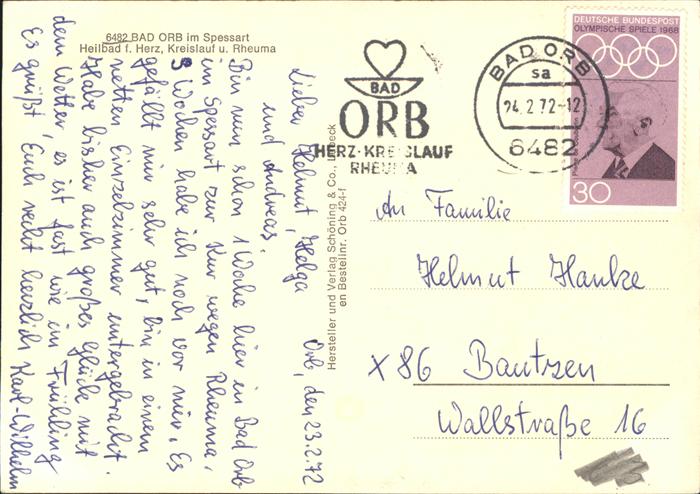 6482 BAD ORB im Spessart
Heilbad f. Herz, Kreislauf u. Rheuma
Orb, den 23.2.72
Lieber Helmut, Helga
und Andreas,
Bin nun schon 1 Woche hier in Bad Orb
im Spessart zur Kur wegen Rheuma,
3 Wochen habe ich noch vor mir. Es
gefällt mir sehr gut, bin in einem
netten Einzelzimmer untergebracht.
Habe bisher auch großes Glück mit
dem Wetter, es ist fast wie im Frühling
Es grüßt Euch recht herzlich Karl-Wilhelm
Hersteller und Verlag Schöning & Co., Lübeck
en Bestellnr. Orb 424-f
BAD
ORB
HERZ·KREISLAUF
RHEUMA
BAD ORB
sa
24.2.72-12
6482
DEUTSCHE BUNDESPOST
OLYMPISCHE SPIELE 1968
30
An Familie
Helmut Hanke
X86 Bautzen
Wallstraße 16